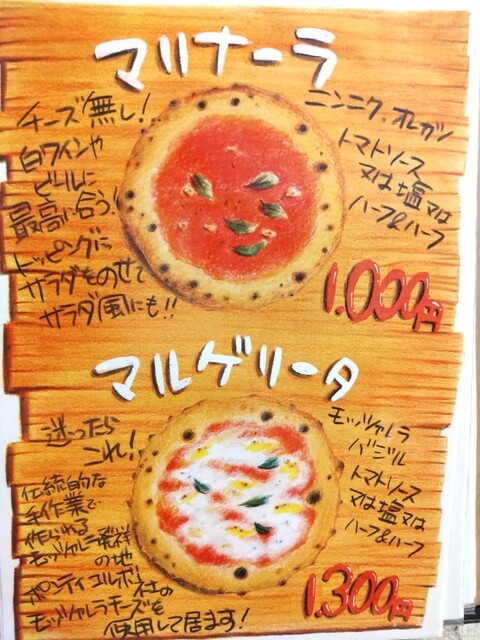 マリナーラ
チーズ無し!
白ワインや
ビールに
最高に合う!
トッピングに
サラダものせて
サラダ風にも!!
ニンニク、オレガノ
トマトソース
又は塩又は
ハーフ&ハーフ
1.000円
マルゲリータ
迷ったら
これ!
伝統的な
手作業で
作られる
モッツァレラ発祥
の地
ポンティコルボ社の
モッツァレラチーズを
使用して居ます!
モッツァレラ
バジル
トマトソース
又は塩又は
ハーフ&ハーフ
1.300円